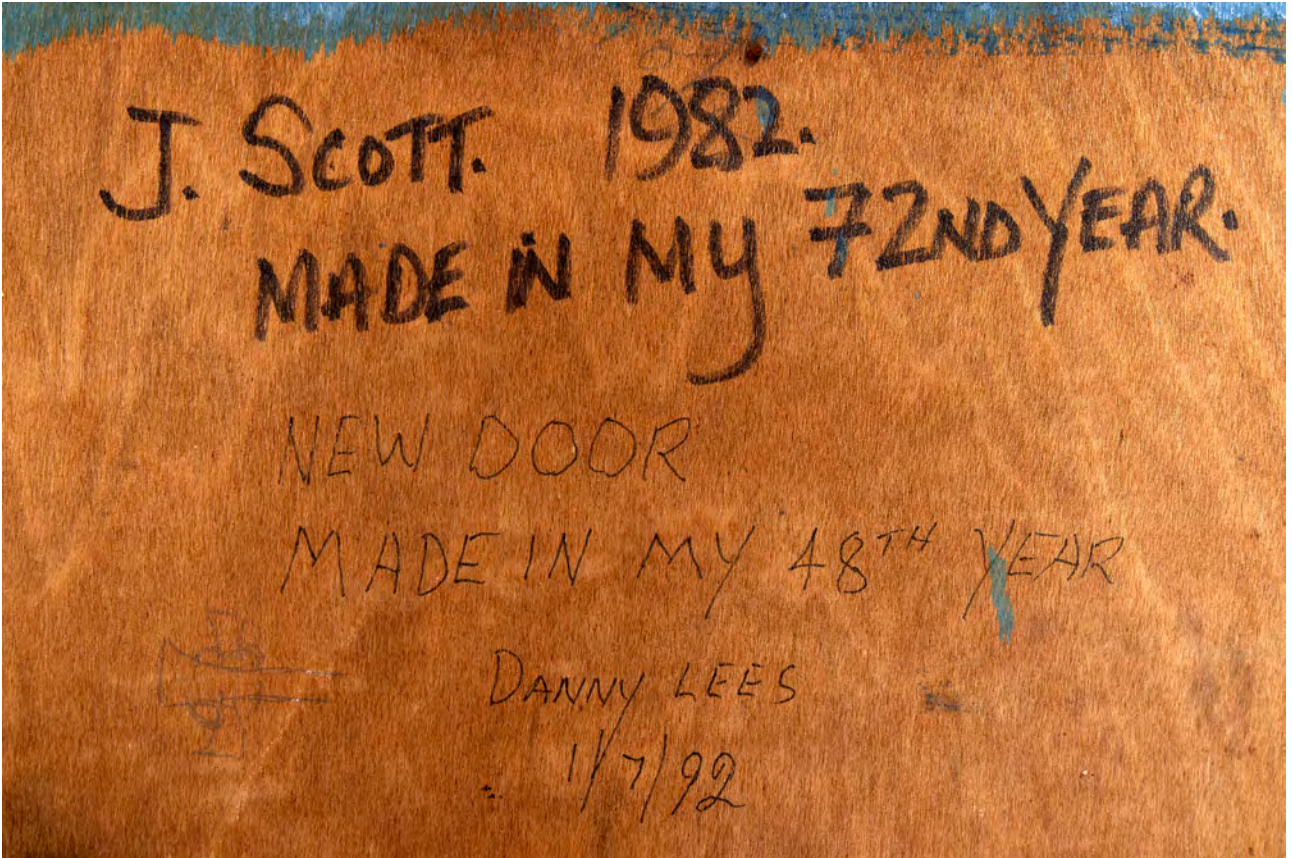 J. SCOTT. 1982.
MADE IN MY 72ND YEAR.
NEW DOOR
MADE IN MY 48TH YEAR
DANNY LEES
1/7/92